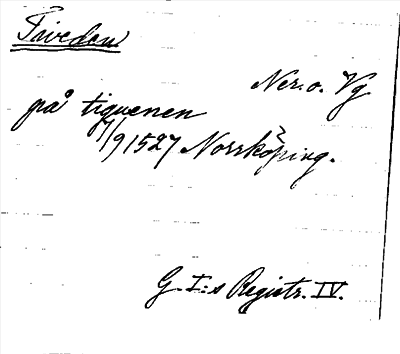 Tiveden
Ner. o. Vg
på tiguenen
7/9 1527 Norrköping.
G. I:s Registr. IV.